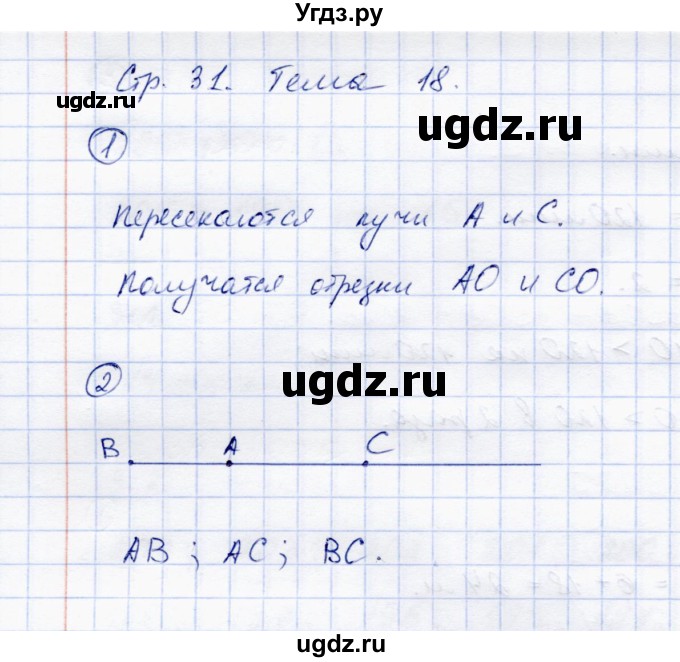 Угдз.ру
Стр. 31. Тема 18.
ugdz.ru
ugdz.ru
1
Пересекаются лучи А и С.
Получатся отрезки АО и СО.
ugdz.ru
2
В А С
АВ ; АС ; ВС.
ugdz.ru